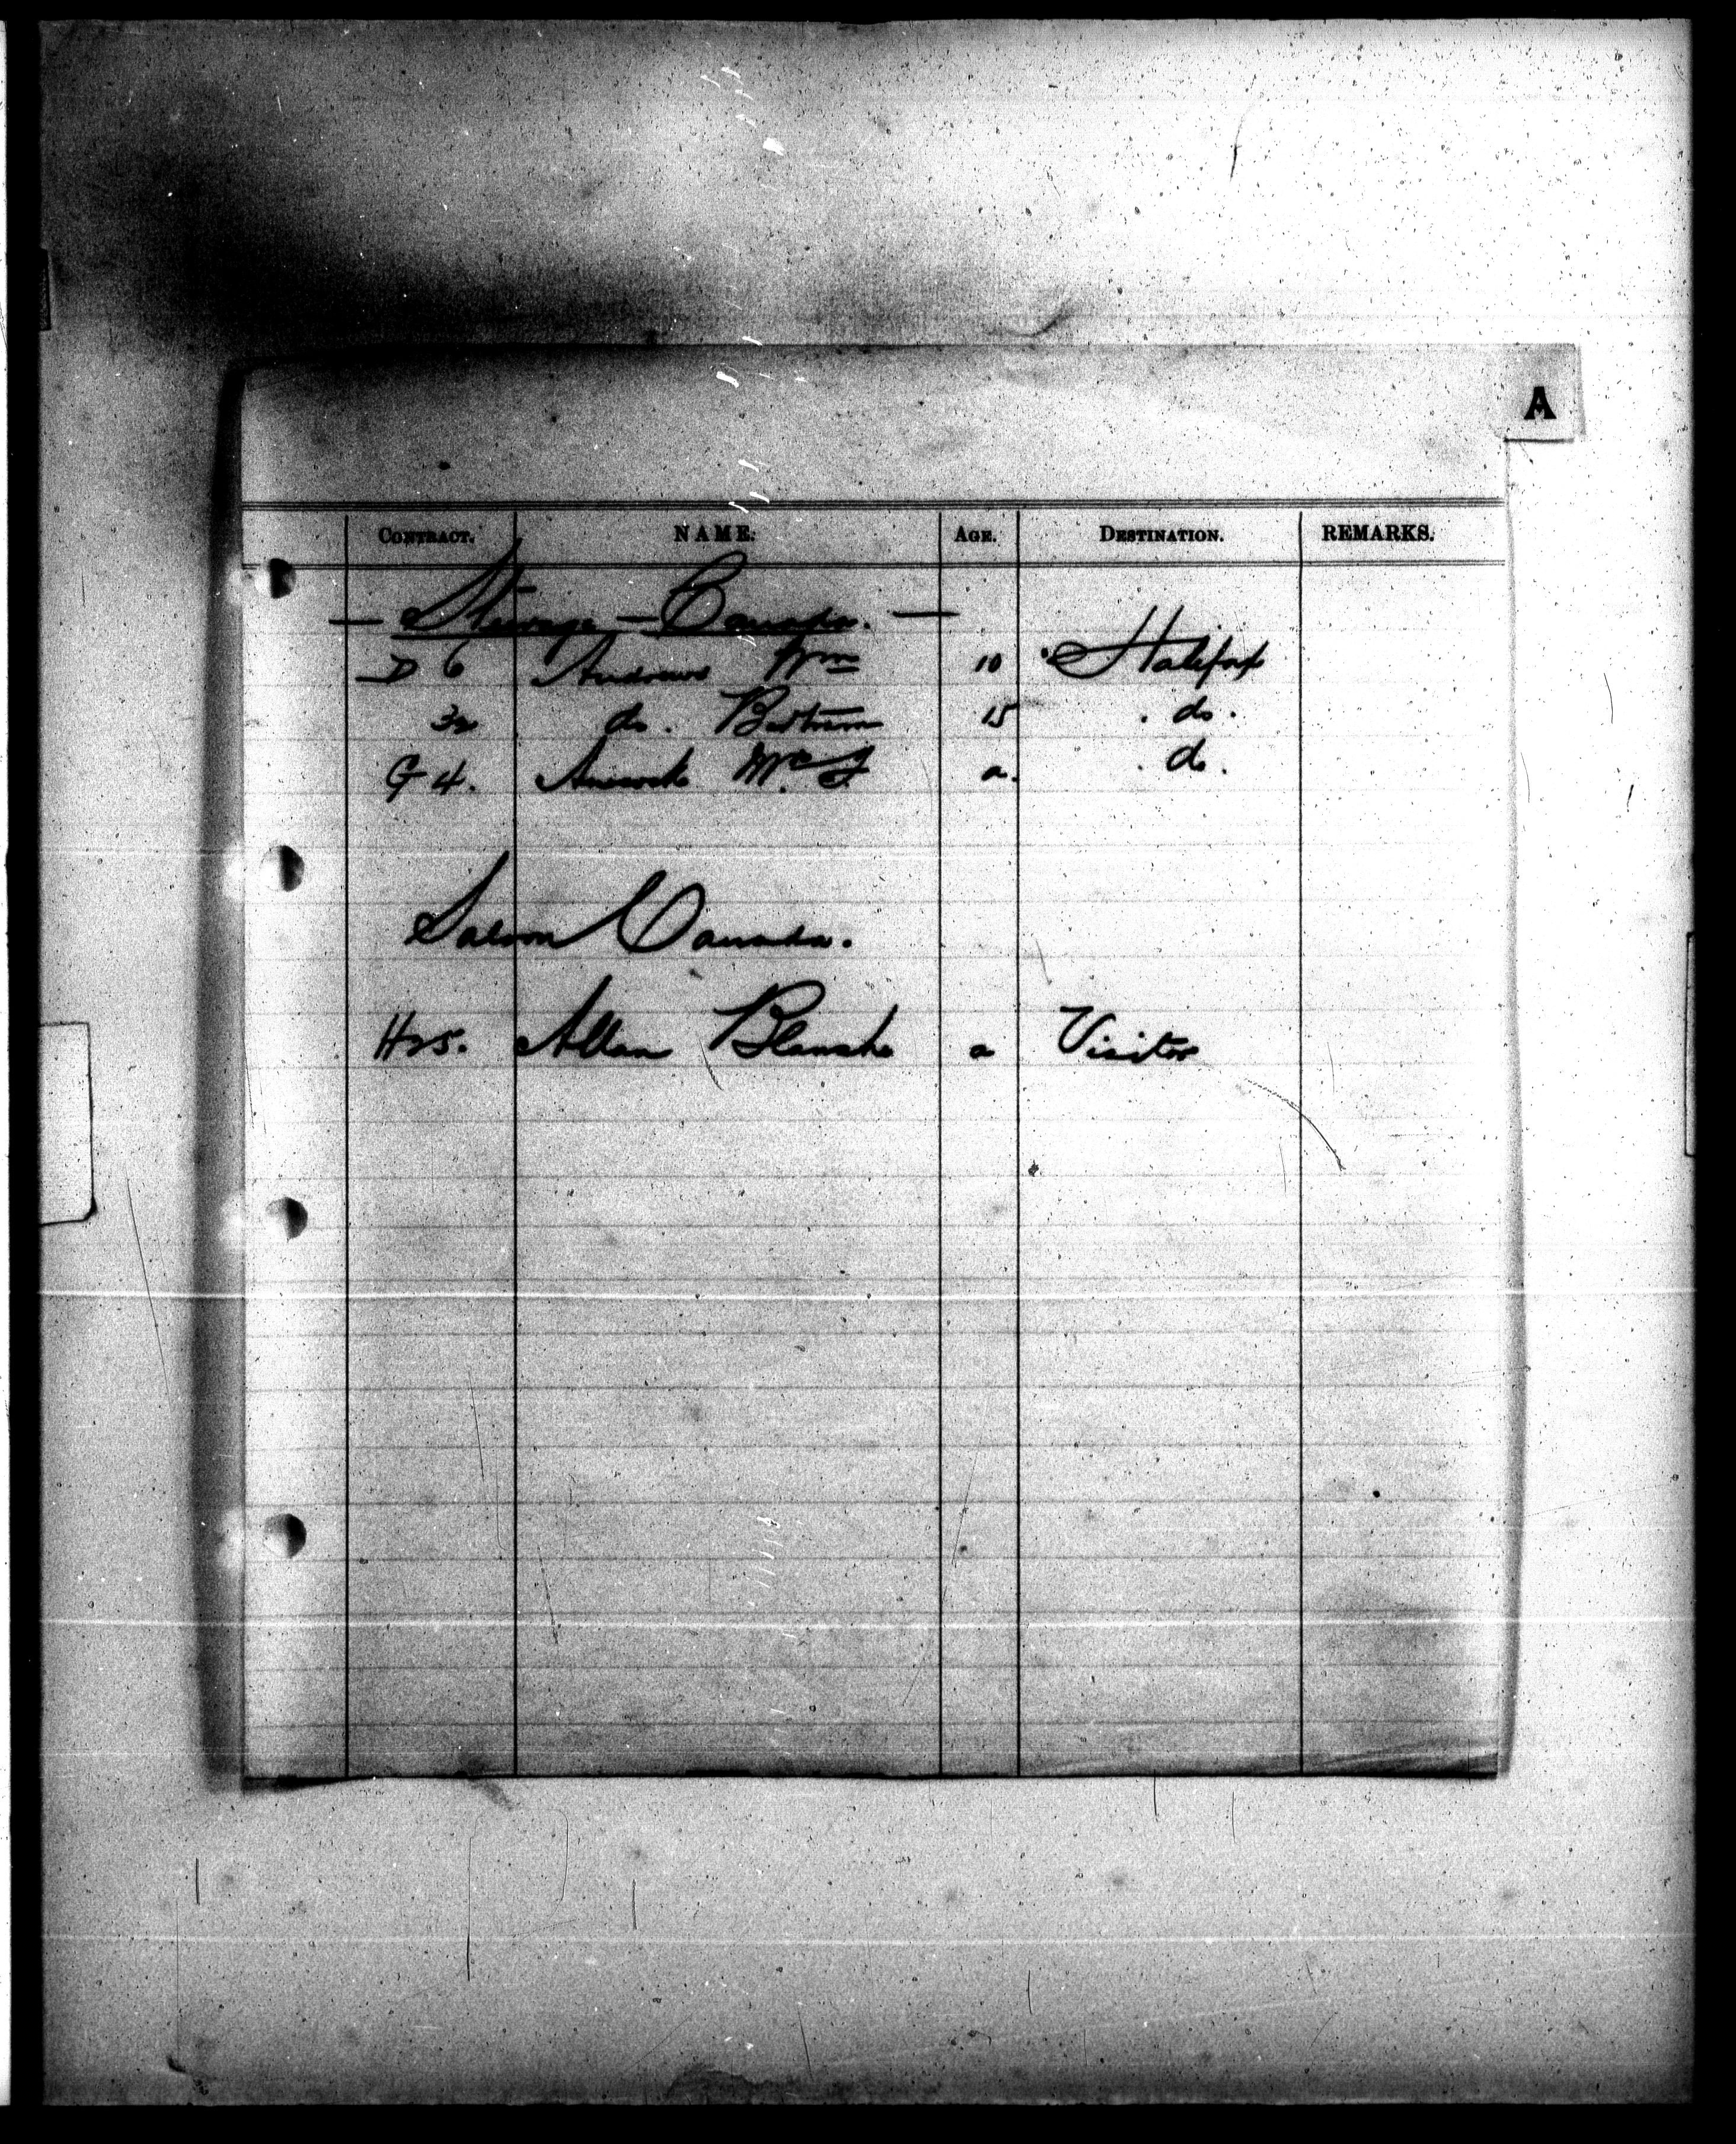 A
CONTRACT. NAME. AGE. DESTINATION. REMARKS.
— Steerage — Canada. —
D 6 Andrews Wm 10 Halifax
32 do. Bertram 15 . do .
G 4. a. . do .
Saloon Canada.
H25. Allan Blanche a Visitor